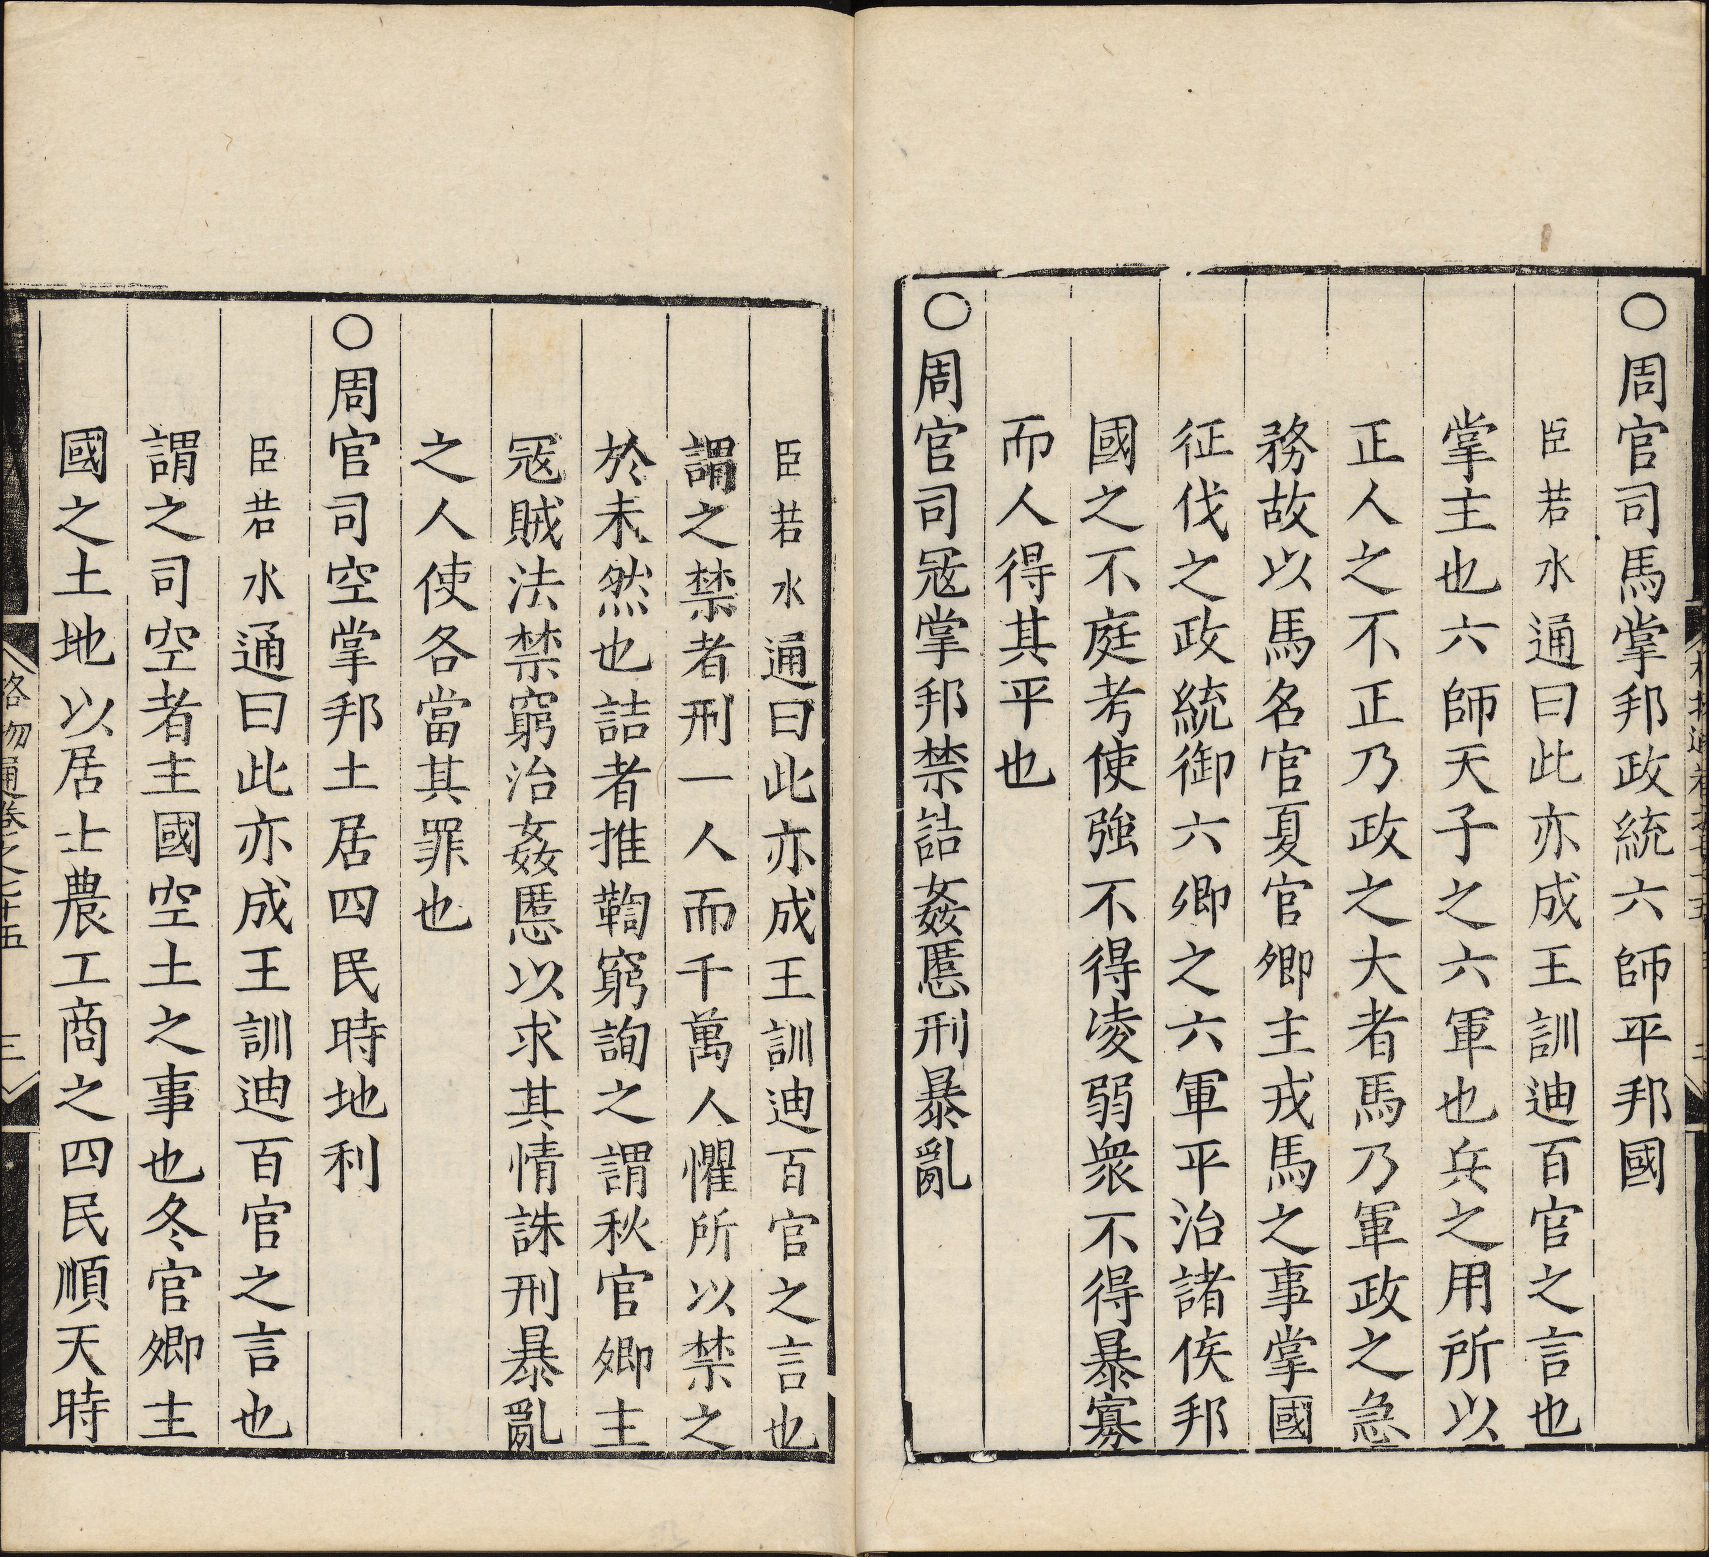 ○周官司馬掌邦政統六師平邦國
臣若水通曰此亦成王訓迪百官之言也
掌主也六師天子之六軍也兵之用所以
正人之不正乃政之大者馬乃軍政之急
務故以馬名官夏官卿主戎馬之事掌國
征伐之政統御六卿之六軍平治諸侯邦
國之不庭考使強不得凌弱衆不得暴寡
而人得其平也
○周官司冦掌邦禁詰姦慝刑暴亂
臣若水通曰此亦成王訓迪百官之言也
謂之禁者刑一人而千萬人懼所以禁之
於未然也詰者推鞫窮詢之謂秋官卿主
冦賊法禁窮治姦慝以求其情誅刑暴亂
之人使各當其罪也
○周官司空掌邦土居四民時地利
臣若水通曰此亦成王訓迪百官之言也
謂之司空者主國空土之事也冬官卿主
國之土地以居士農工商之四民順天時
格物通卷之七十五 三